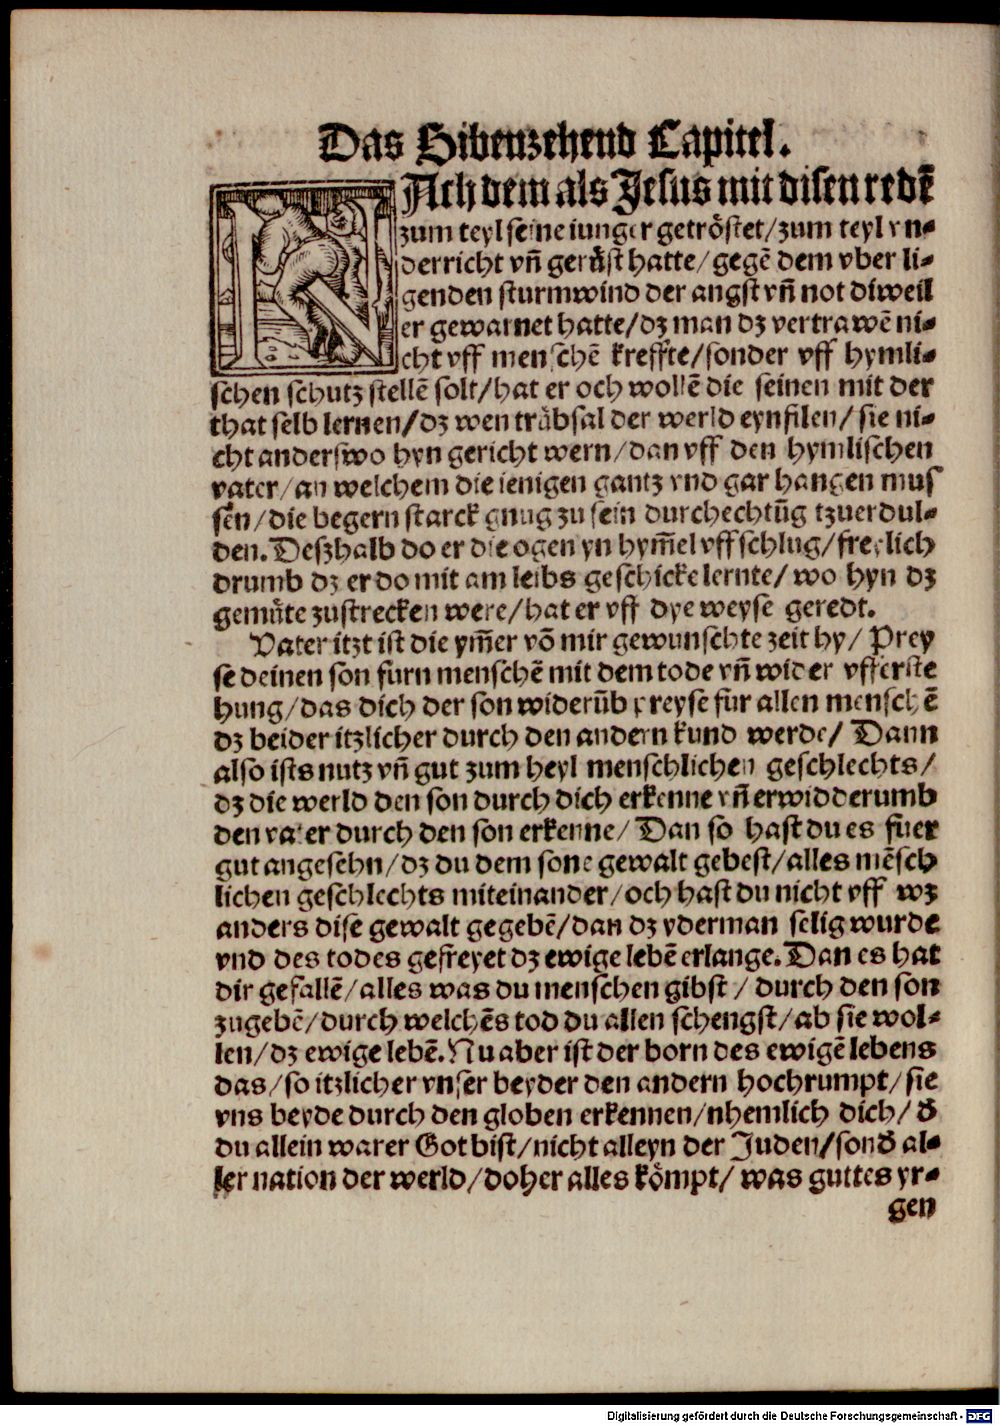 Das Sibenzehend Capitel.
NAch dem als Jesus mit disen redē
zum teyl seine iunger getröstet/zum teyl vn⸗
derricht vñ gerüst hatte/gegē dem vber li⸗
genden sturmwind der angst vñ not diweil
er gewarnet hatte/dz man dz vertrawē ni⸗
cht vff menschē kreffte/sonder vff hymli⸗
schen schutz stellē solt/hat er och wollē die seinen mit der
that selb lernen/dz wen trübsal der werld eynfilen/sie ni⸗
cht anderswo hyn gericht wern/dan vff den hymlischen
vater/an welchem die ienigen gantz vnd gar hangen mus
sen/die begern starck gnug zu sein durchechtūg tzuerdul⸗
den. Deszhalb do er die ogen yn hym̄el vff schlug/freylich
drumb dz er do mit am leibs geschicke lernte/wo hyn dz
gemüte zustrecken were/hat er vff dye weyse geredt.
Vater itzt ist die ym̄er vō mir gewunschte zeit hy/Prey
se deinen son furn menschē mit dem tode vñ wider vfferste
hung/das dich der son widerūb preyse fur allen menschē
dz beider itzlicher durch den andern kund werde/Dann
also ists nutz vñ gut zum heyl menschlichen geschlechts/
dz die werld den son durch dich erkenne vñ erwidderumb
den vater durch den son erkenne/Dan so hast du es fuer
gut angesehn/dz du dem sone gewalt gebest/alles mēsch
lichen geschlechts miteinander/och hast du nicht vff wz
anders dise gewalt gegebē/dan dz yderman selig wurde
vnd des todes gefreyet dz ewige lebē erlange. Dan es hat
dir gefallē/alles was du menschen gibst/durch den son
zugebē/durch welchēs tod du allen schengst/ab sie wol⸗
len/dz ewige lebē. Nu aber ist der born des ewigē lebens
das/so itzlicher vnser beyder den andern hochrumpt/sie
vns beyde durch den globen erkennen/nhemlich dich/d̄
du allein warer Got bist/nicht alleyn der Juden/sond̄ al⸗
ler nation der werld/doher alles kömpt/was guttes yr⸗
gen
Digitalisierung gefördert durch die Deutsche Forschungsgemeinschaft - DFG